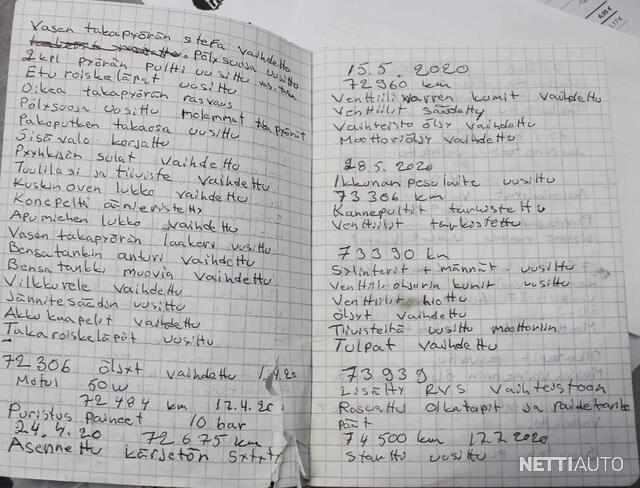 Vasen takapyörän stefa vaihdettu
Pölysuoja uusittu
2kpl pyörän pultti uusittu vas. taka
Etu roiskeläpät uusittu
Oikea takapyörän rasvaus
Pölysuoja uusittu molemmat takapyörät
Pakoputken takaosa uusittu
Sisävalo korjattu
Pyyhkijän sulat vaihdettu
Tuulilasi ja tiiviste vaihdettu
Kuskin oven lukko vaihdettu
Konepelti äänieristetty
Apumiehen lukko vaihdettu
Vasen takapyörän laakeri uusittu
Bensatankin anturi vaihdettu
Bensatankki muovia vaihdettu
Vilkkurele vaihdettu
Jännitesäädin uusittu
Akku kaapelit vaihdettu
Takaroiskeläpät uusittu
72306 öljyt vaihdettu 1.4.20
Motul 60w
72484 km 12.4.20
Puristus Paineet 10 bar
24.4.20 72675 km
Asennettu kärjetön sytyty
15.5. 2020
72960 km
Venttiilivarren kumit vaihdettu
Venttiilit säädetty
Vaihteisto öljy vaihdettu
Moottoriöljy vaihdettu
28.5. 2020
Ikkunan pesulaite uusittu
73306 km
Kannepultit tarkistettu
Venttiilit tarkistettu
73390 km
Sylinterit + männät uusittu
Venttiil ohjurin kumit uusittu
Venttiilit hiottu
öljyt vaihdettu
Tiivisteitä uusittu moottoriin
Tulpat vaihdettu
73939
Lisätty RVS vaihteistoon
Rasvattu olkatapit ja raidetanko
päät
74500 km 17.7.2020
Startti uusittu
NETTIAUTO